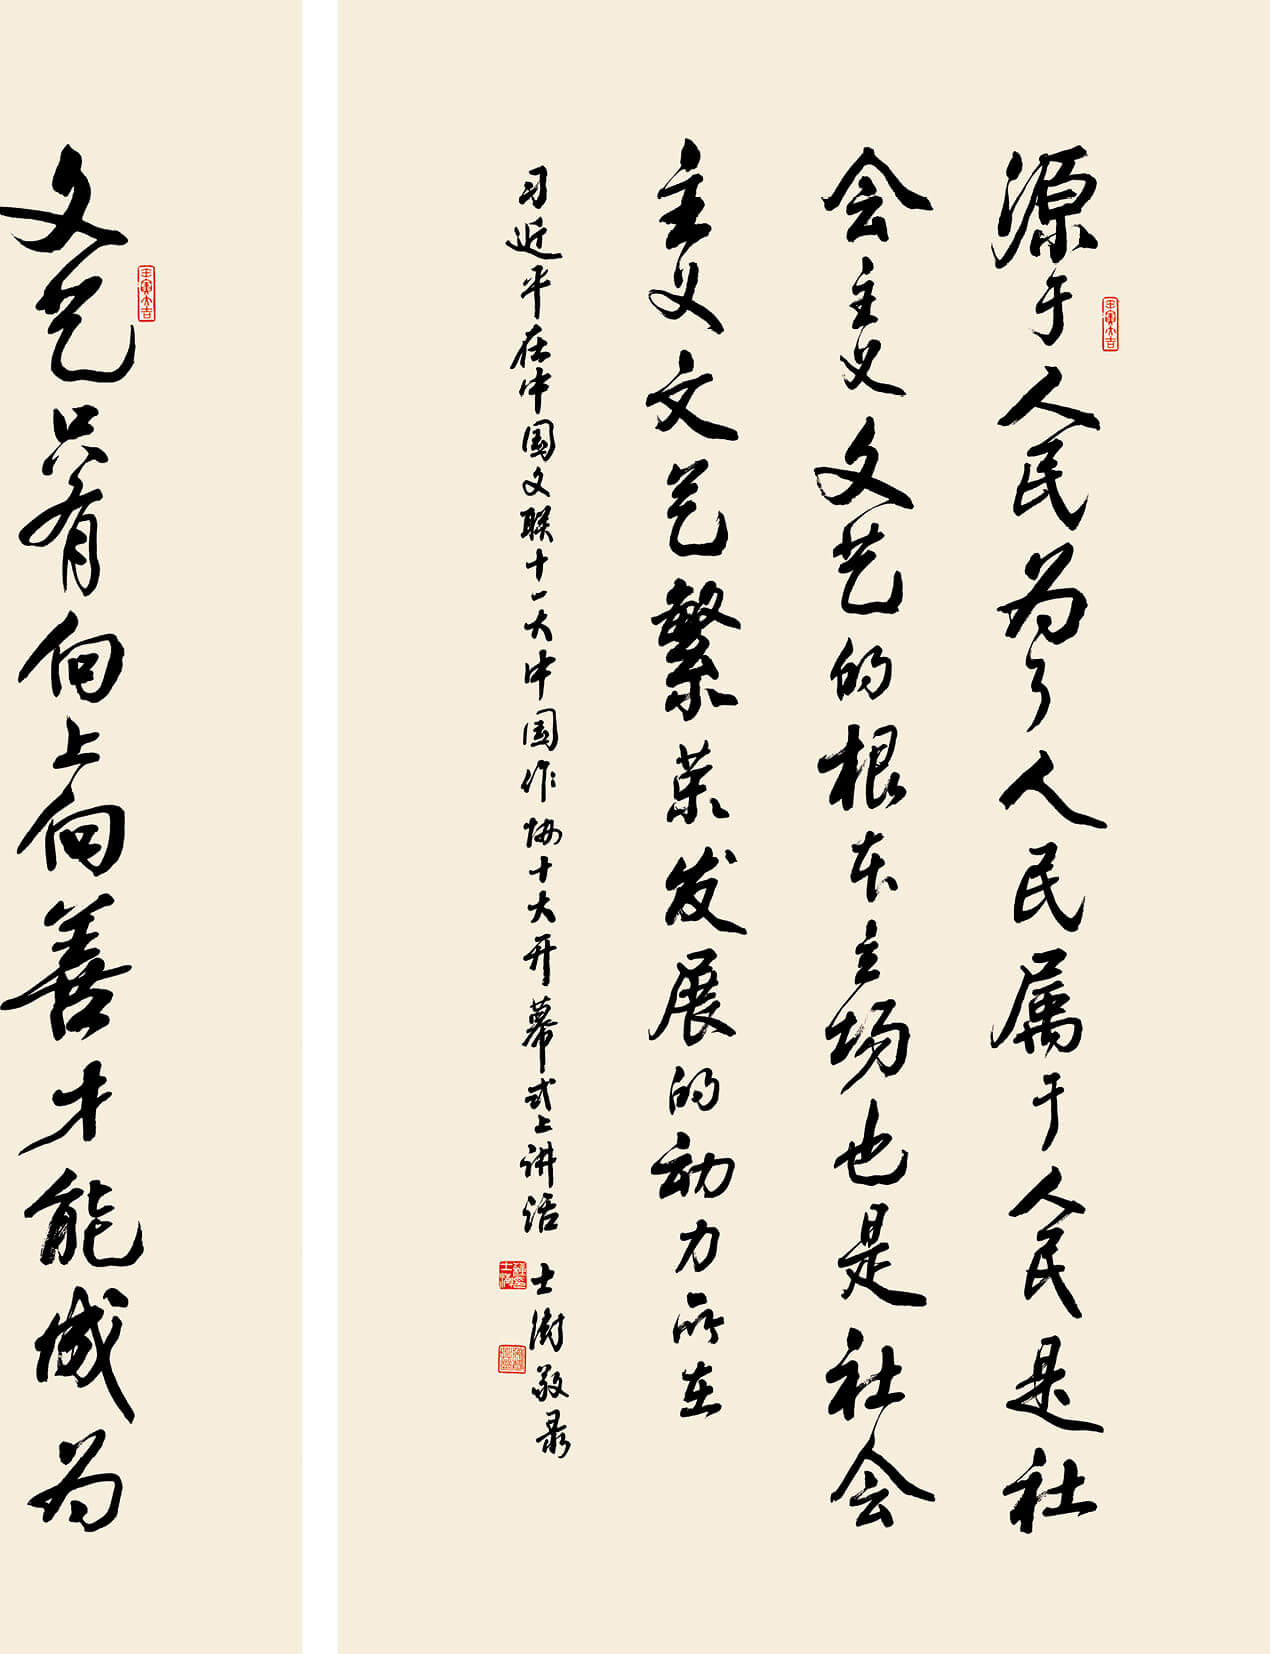 源于人民为了人民属于人民是社
会主义文艺的根本立场也是社会
主义文艺繁荣发展的动力所在
习近平在中国文联十一大中国作协十大开幕式上讲话 士澍敬录
壬寅大吉
文艺只有向上向善才能成为
壬寅大吉